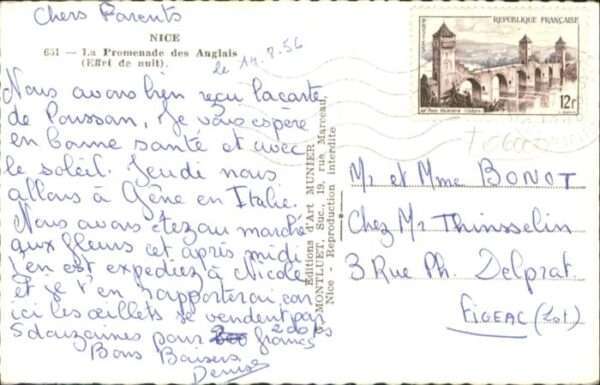 Chers Parents
NICE
651 — La Promenade des Anglais
(Effet de nuit).
le 14.8.56
Nous avons bien reçu la carte
de Poussan, Je vous espère
en bonne santé et avec
le soleil. Jeudi nous
allons à Gêne en Italie.
Nous avons étez au marché
aux fleurs cet après midi
j'en est expediez à Nicole
et je t'en rapporterai car
ici les œillets se vendent par
5 douzaines pour 200 francs
Bons Baisers
Denise
Editions d'Art MUNIER
MONTLUET, Suc., 19, rua Marceau,
Nice - Reproduction Interdite
REPUBLIQUE FRANÇAISE
POSTES
12F
Mr et Mme BONOT
Chez Mr Thinsselin
3 Rue Ph. Delprat.
FIGEAC (Lot).